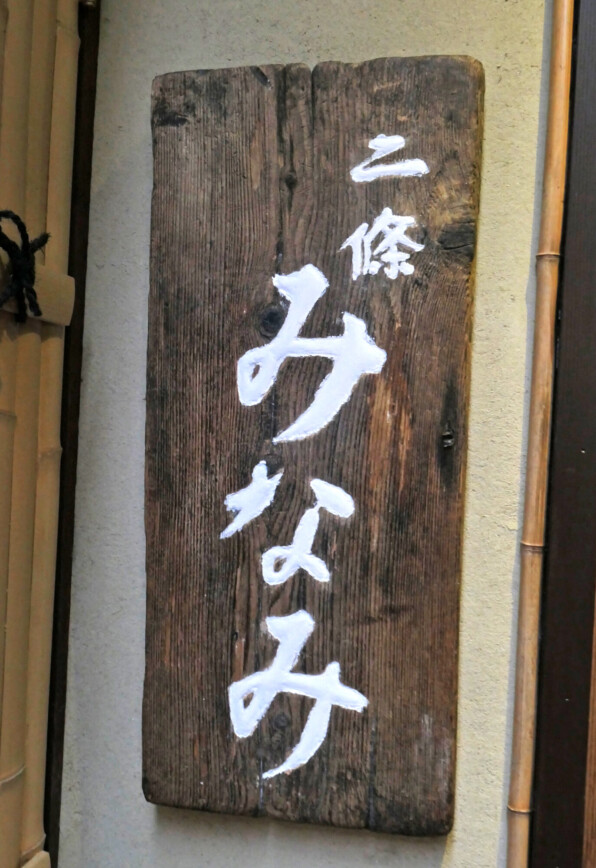 二條
みなみ